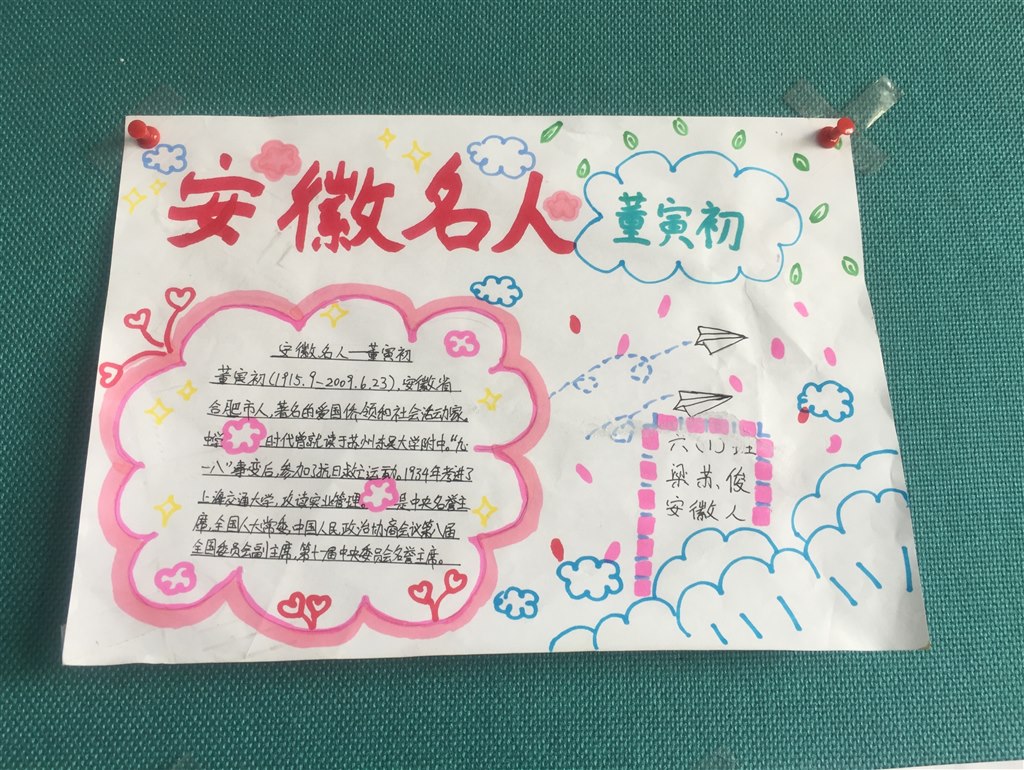 安徽名人
董寅初
安徽名人—董寅初
董寅初(1915.9-2009.6.23).安徽省
合肥市人,著名的爱国侨领和社会活动家,
时代曾就读于苏州东吴大学附中。“九
一八”事变后,参加了抗日救亡运动。1934年考进了
上海交通大学,攻读实业管理。是中央名誉主
席,全国人大常委,中国人民政治协商会议第八届
全国委员会副主席,第十一届中央委员会名誉主席。
六(1)班
梁苏俊
安徽人